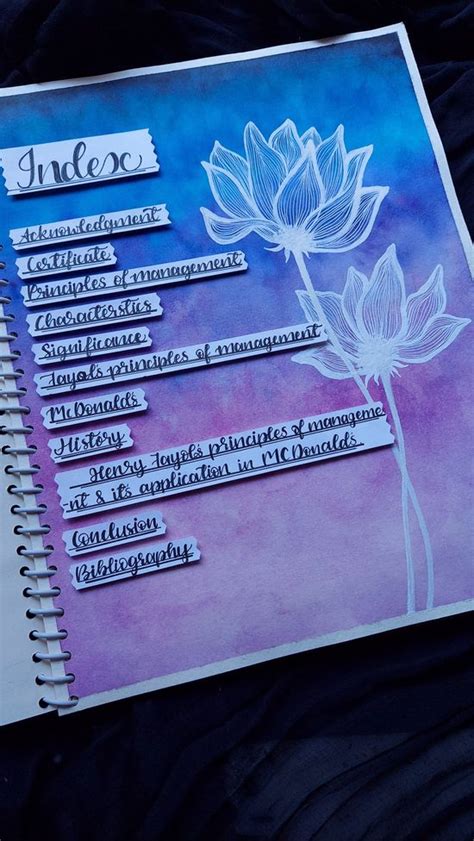 Index
Acknowledgment
Certificate
Principles of management
Characterstics
Significance
Fayol's principles of management
McDonald's
History
Henry Fayol's principles of manageme
-nt & it's application in MCDonald's
Conclusion
Bibliography